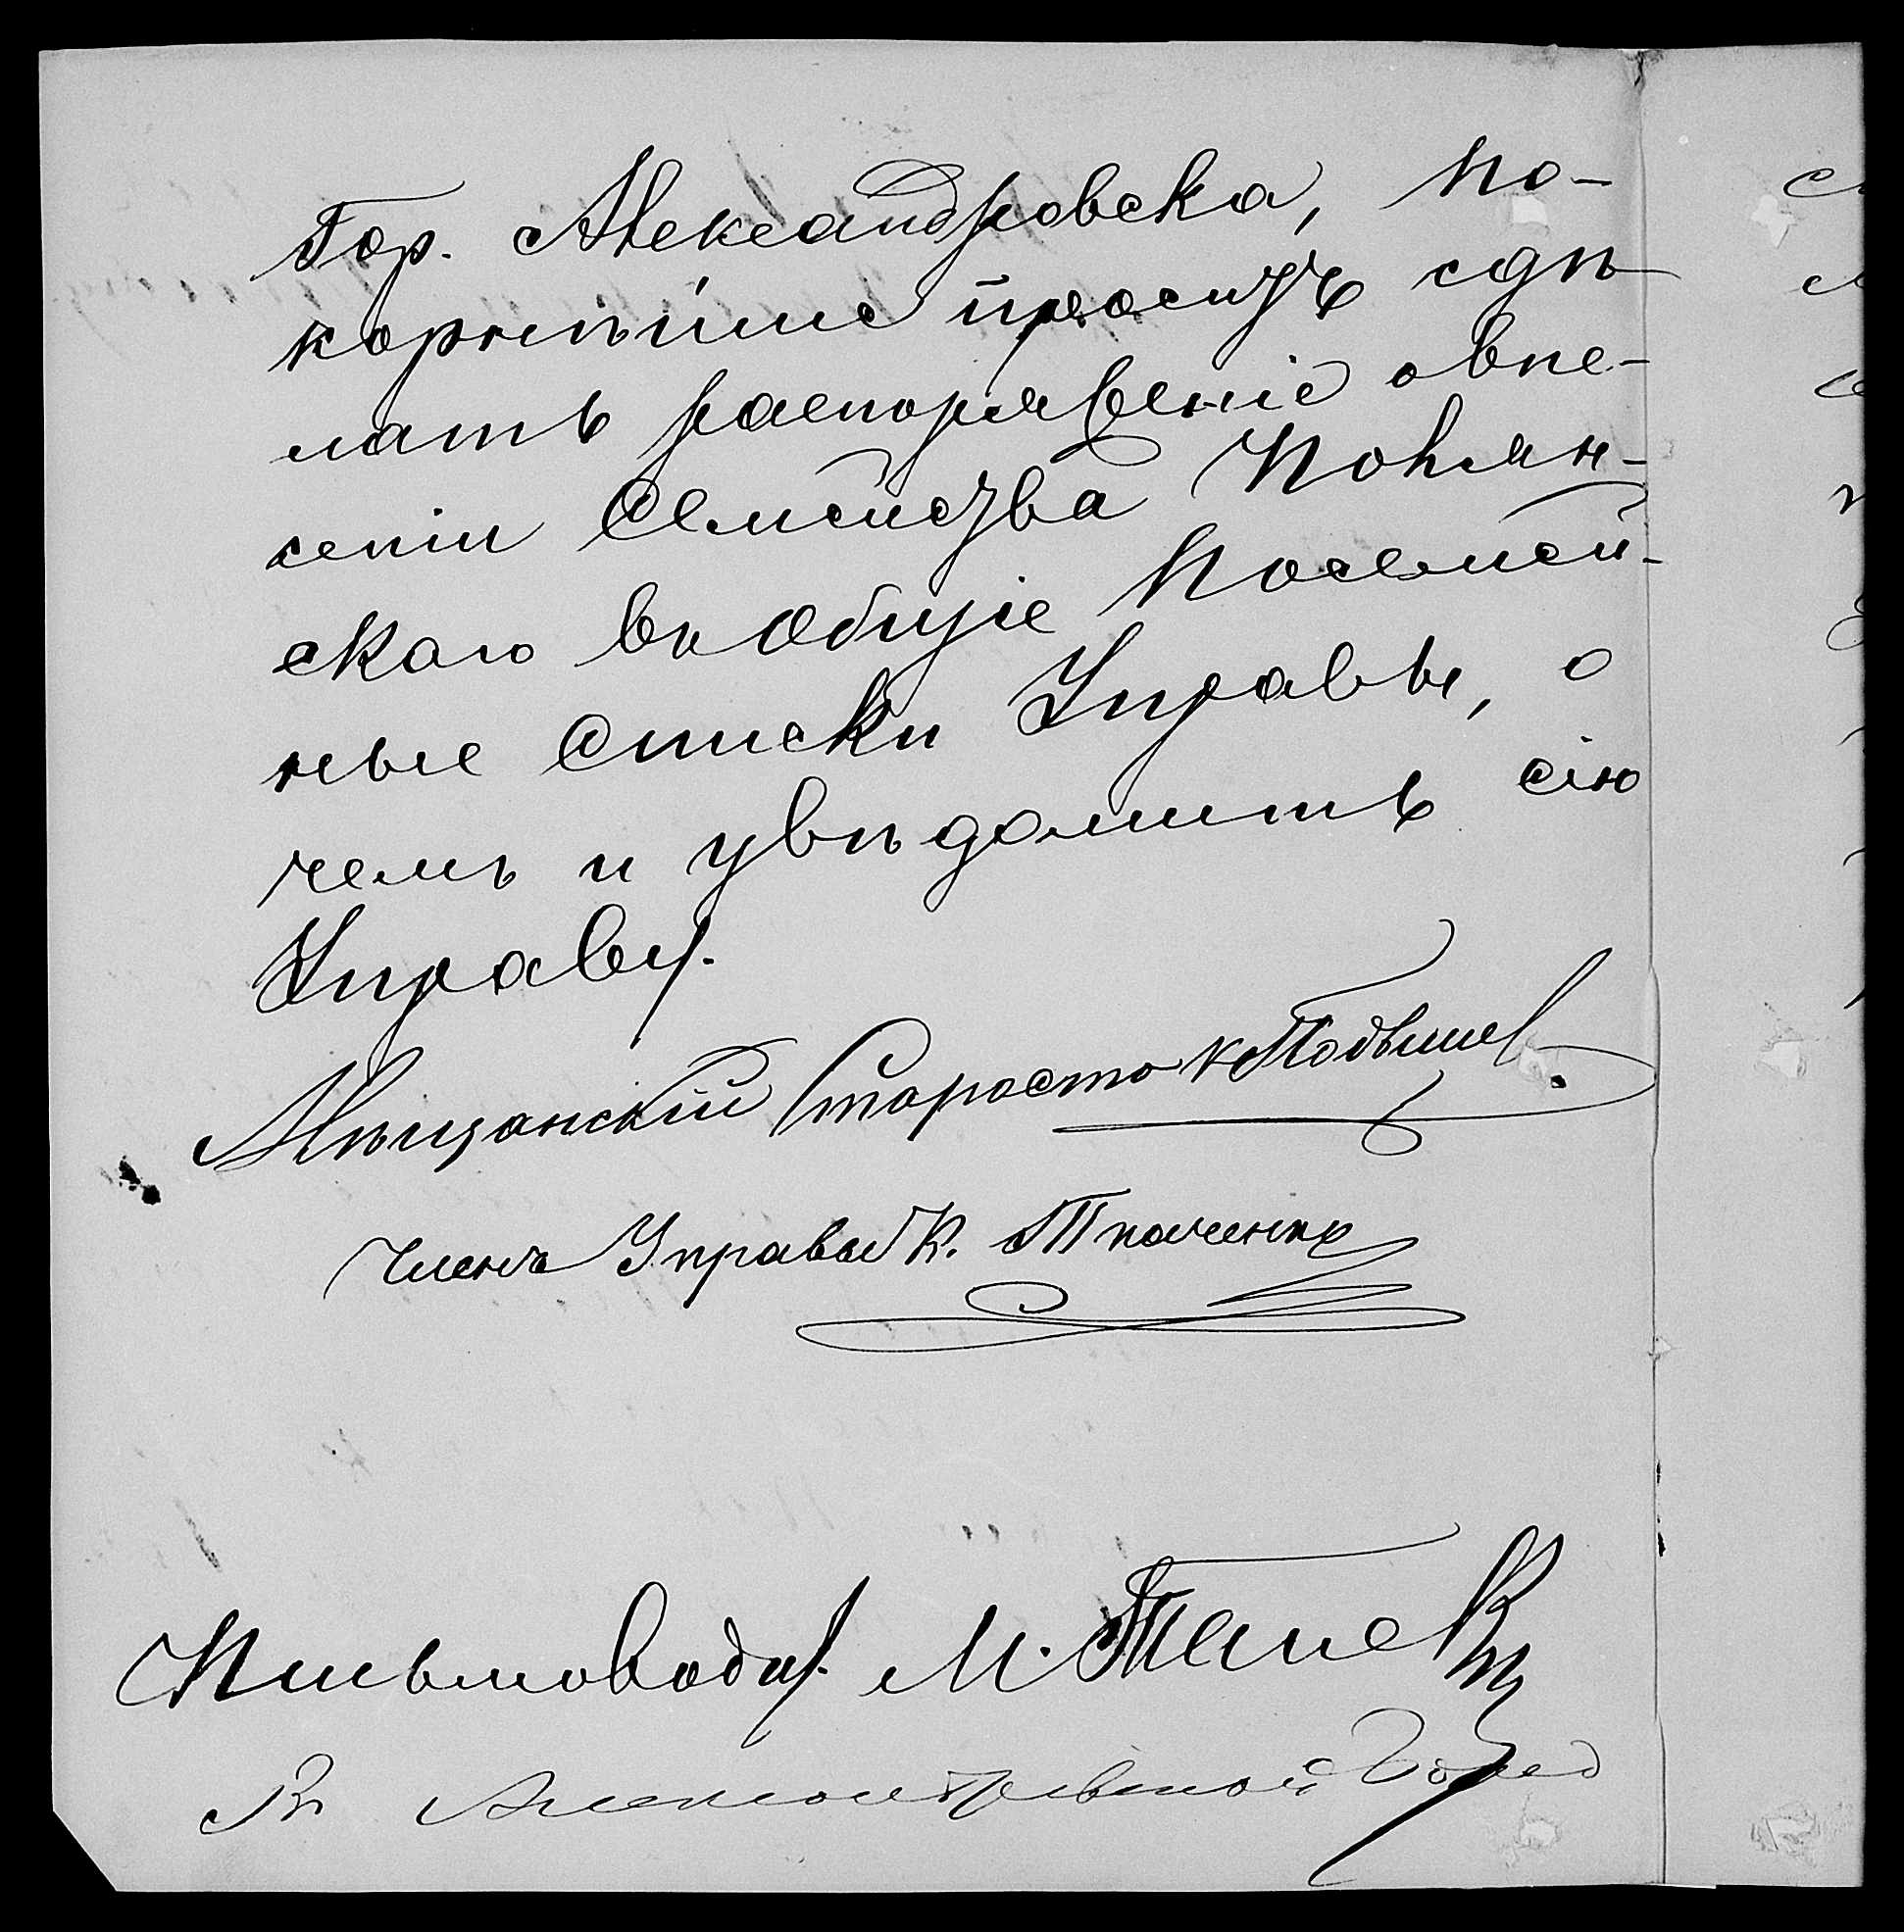 Гор. Александровска, по-
корнѣйше проситъ сдѣ
лать распоряженіе овне-
сеніи Семейства Поклян-
скаго въ Общіе Посемей-
ные Списки Управы, о
чемъ и увѣдомить сію
Управу.
Мѣщанскій Староста
Членъ Управы К. Ткаченко
Письмовод. М.
В Александровской Город